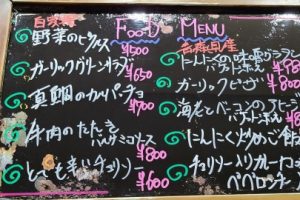 FOOD MENU
自家製
野菜のピクルス
¥500
ガーリックグリーンサラダ
¥650
真鯛のカルパッチョ
¥700
牛肉のたたき
バルサミコソース
¥800
とっても辛いチョリソー
¥600
青森県産
にんにくの味噌グラタン
バケット添え
¥78
ガーリックピザ
¥80
海老とベーコンのアヒー
バケット添え
にんにく炒めご飯
¥8
チョリソー入りガーリ
ペペロンチ